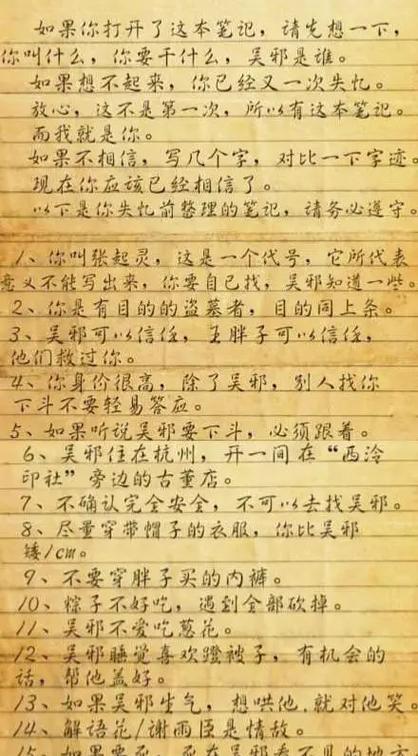 如果你打开了这本笔记，请先想一下，
你叫什么，你要干什么，吴邪是谁。
如果想不起来，你已经又一次失忆。
放心，这不是第一次，所以有这本笔记。
而我就是你。
如果不相信，写几个字，对比一下字迹。
现在你应该已经相信了。
以下是你失忆前整理的笔记，请务必遵守。
1、你叫张起灵，这是一个代号，它所代表
意义不能写出来，你要自己找，吴邪知道一些。
2、你是有目的的盗墓者，目的同上条。
3、吴邪可以信任，王胖子可以信任，
他们救过你。
4、你身价很高，除了吴邪，别人找你
下斗不要轻易答应。
5、如果听说吴邪要下斗，必须跟着。
6、吴邪住在杭州，开一间在“西泠
印社”旁边的古董店。
7、不确认完全安全，不可以去找吴邪。
8、尽量穿带帽子的衣服，你比吴邪
矮1cm。
9、不要穿胖子买的内裤。
10、粽子不好吃，遇到全部砍掉。
11、吴邪不爱吃葱花。
12、吴邪睡觉喜欢蹬被子，有机会的
话，帮他盖好。
13、如果吴邪生气，想哄他，就对他笑。
14、解语花/谢雨臣是情敌。
15、如果要死，死在吴邪看不见的地方